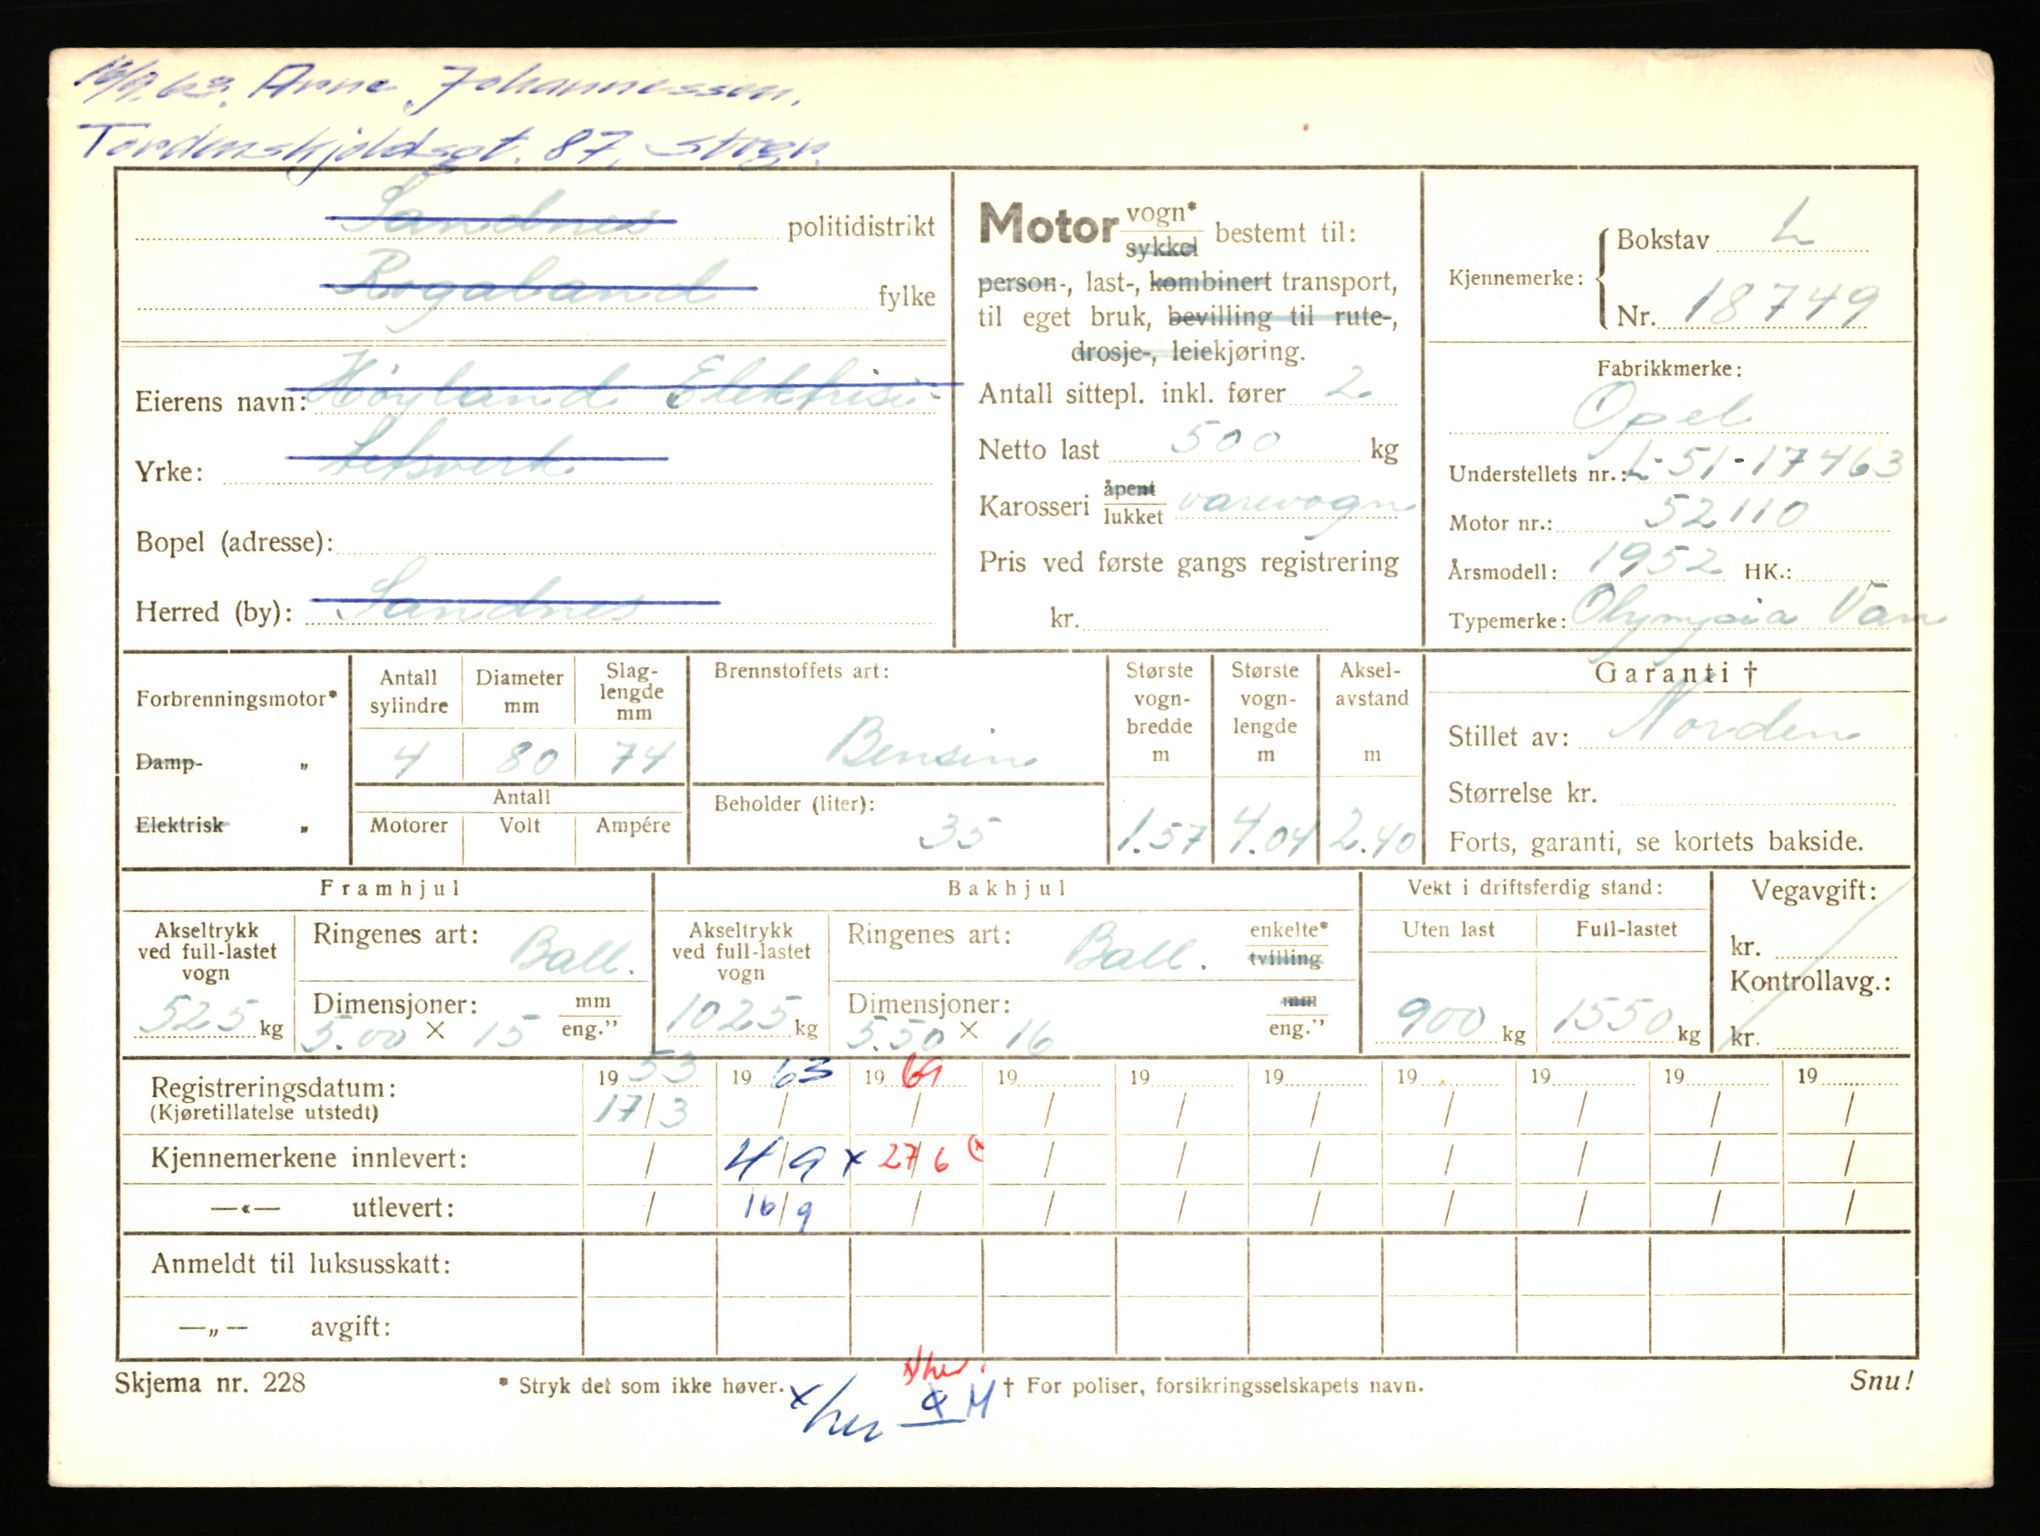 16/9.63. Arne Johannessen.
Tordenskjoldsgt. 87, Stvgr.
Sandnes politidistrikt
Rogaland fylke
Eierens navn: Høyland Elektrisi-
Yrke: tetsverk
Bopel (adresse):
Herred (by): Sandnes
Motor vogn* sykkel bestemt til:
person-, last-, kombinert transport,
til eget bruk, bevilling til rute-,
drosje-, leiekjøring.
Antall sittepl. inkl. fører 2
Netto last 500 kg
Karosseri åpent lukket varevogn
Pris ved første gangs registrering
kr.
Kjennemerke: Bokstav L
Nr. 18749
Fabrikkmerke:
Opel
Understellets nr.: L-51-17463
Motor nr.: 52110
Årsmodell: 1952 HK.:
Typemerke: Olympia Van
Forbrenningsmotor*
Damp- „
Elektrisk „
Antall sylindre Diameter mm Slag-lengde mm
4 80 74
Antall
Motorer Volt Ampére
Brennstoffets art:
Bensin
Beholder (liter):
35
Største vogn-bredde m
1.57
Største vogn-lengde m
4.04
Aksel-avstand m
2.40
Garanti †
Stillet av: Norden
Størrelse kr.
Forts, garanti, se kortets bakside.
Framhjul
Akseltrykk ved full-lastet vogn
525 kg
Ringenes art: Ball.
Dimensjoner: mm eng."
5.00 × 15
Bakhjul
Akseltrykk ved full-lastet vogn
1025 kg
Ringenes art: Ball. enkelte* tvilling
Dimensjoner: mm eng."
5.50 × 16
Vekt i driftsferdig stand:
Uten last Full-lastet
900 kg 1550 kg
Vegavgift:
kr.
Kontrollavg.:
kr.
Registreringsdatum: 1953 1963 1969 19 19 19 19 19 19 19
(Kjøretillatelse utstedt) 17/3 / / / / / / / / /
Kjennemerkene innlevert: / 4/9 x 27/6 (x / / / / / / /
—«— utlevert: / 16/9 / / / / / / / /
Anmeldt til luksusskatt:
—„— avgift:
Skjema nr. 228 * Stryk det som ikke høver. † For poliser, forsikringsselskapets navn. Snu!
x/her